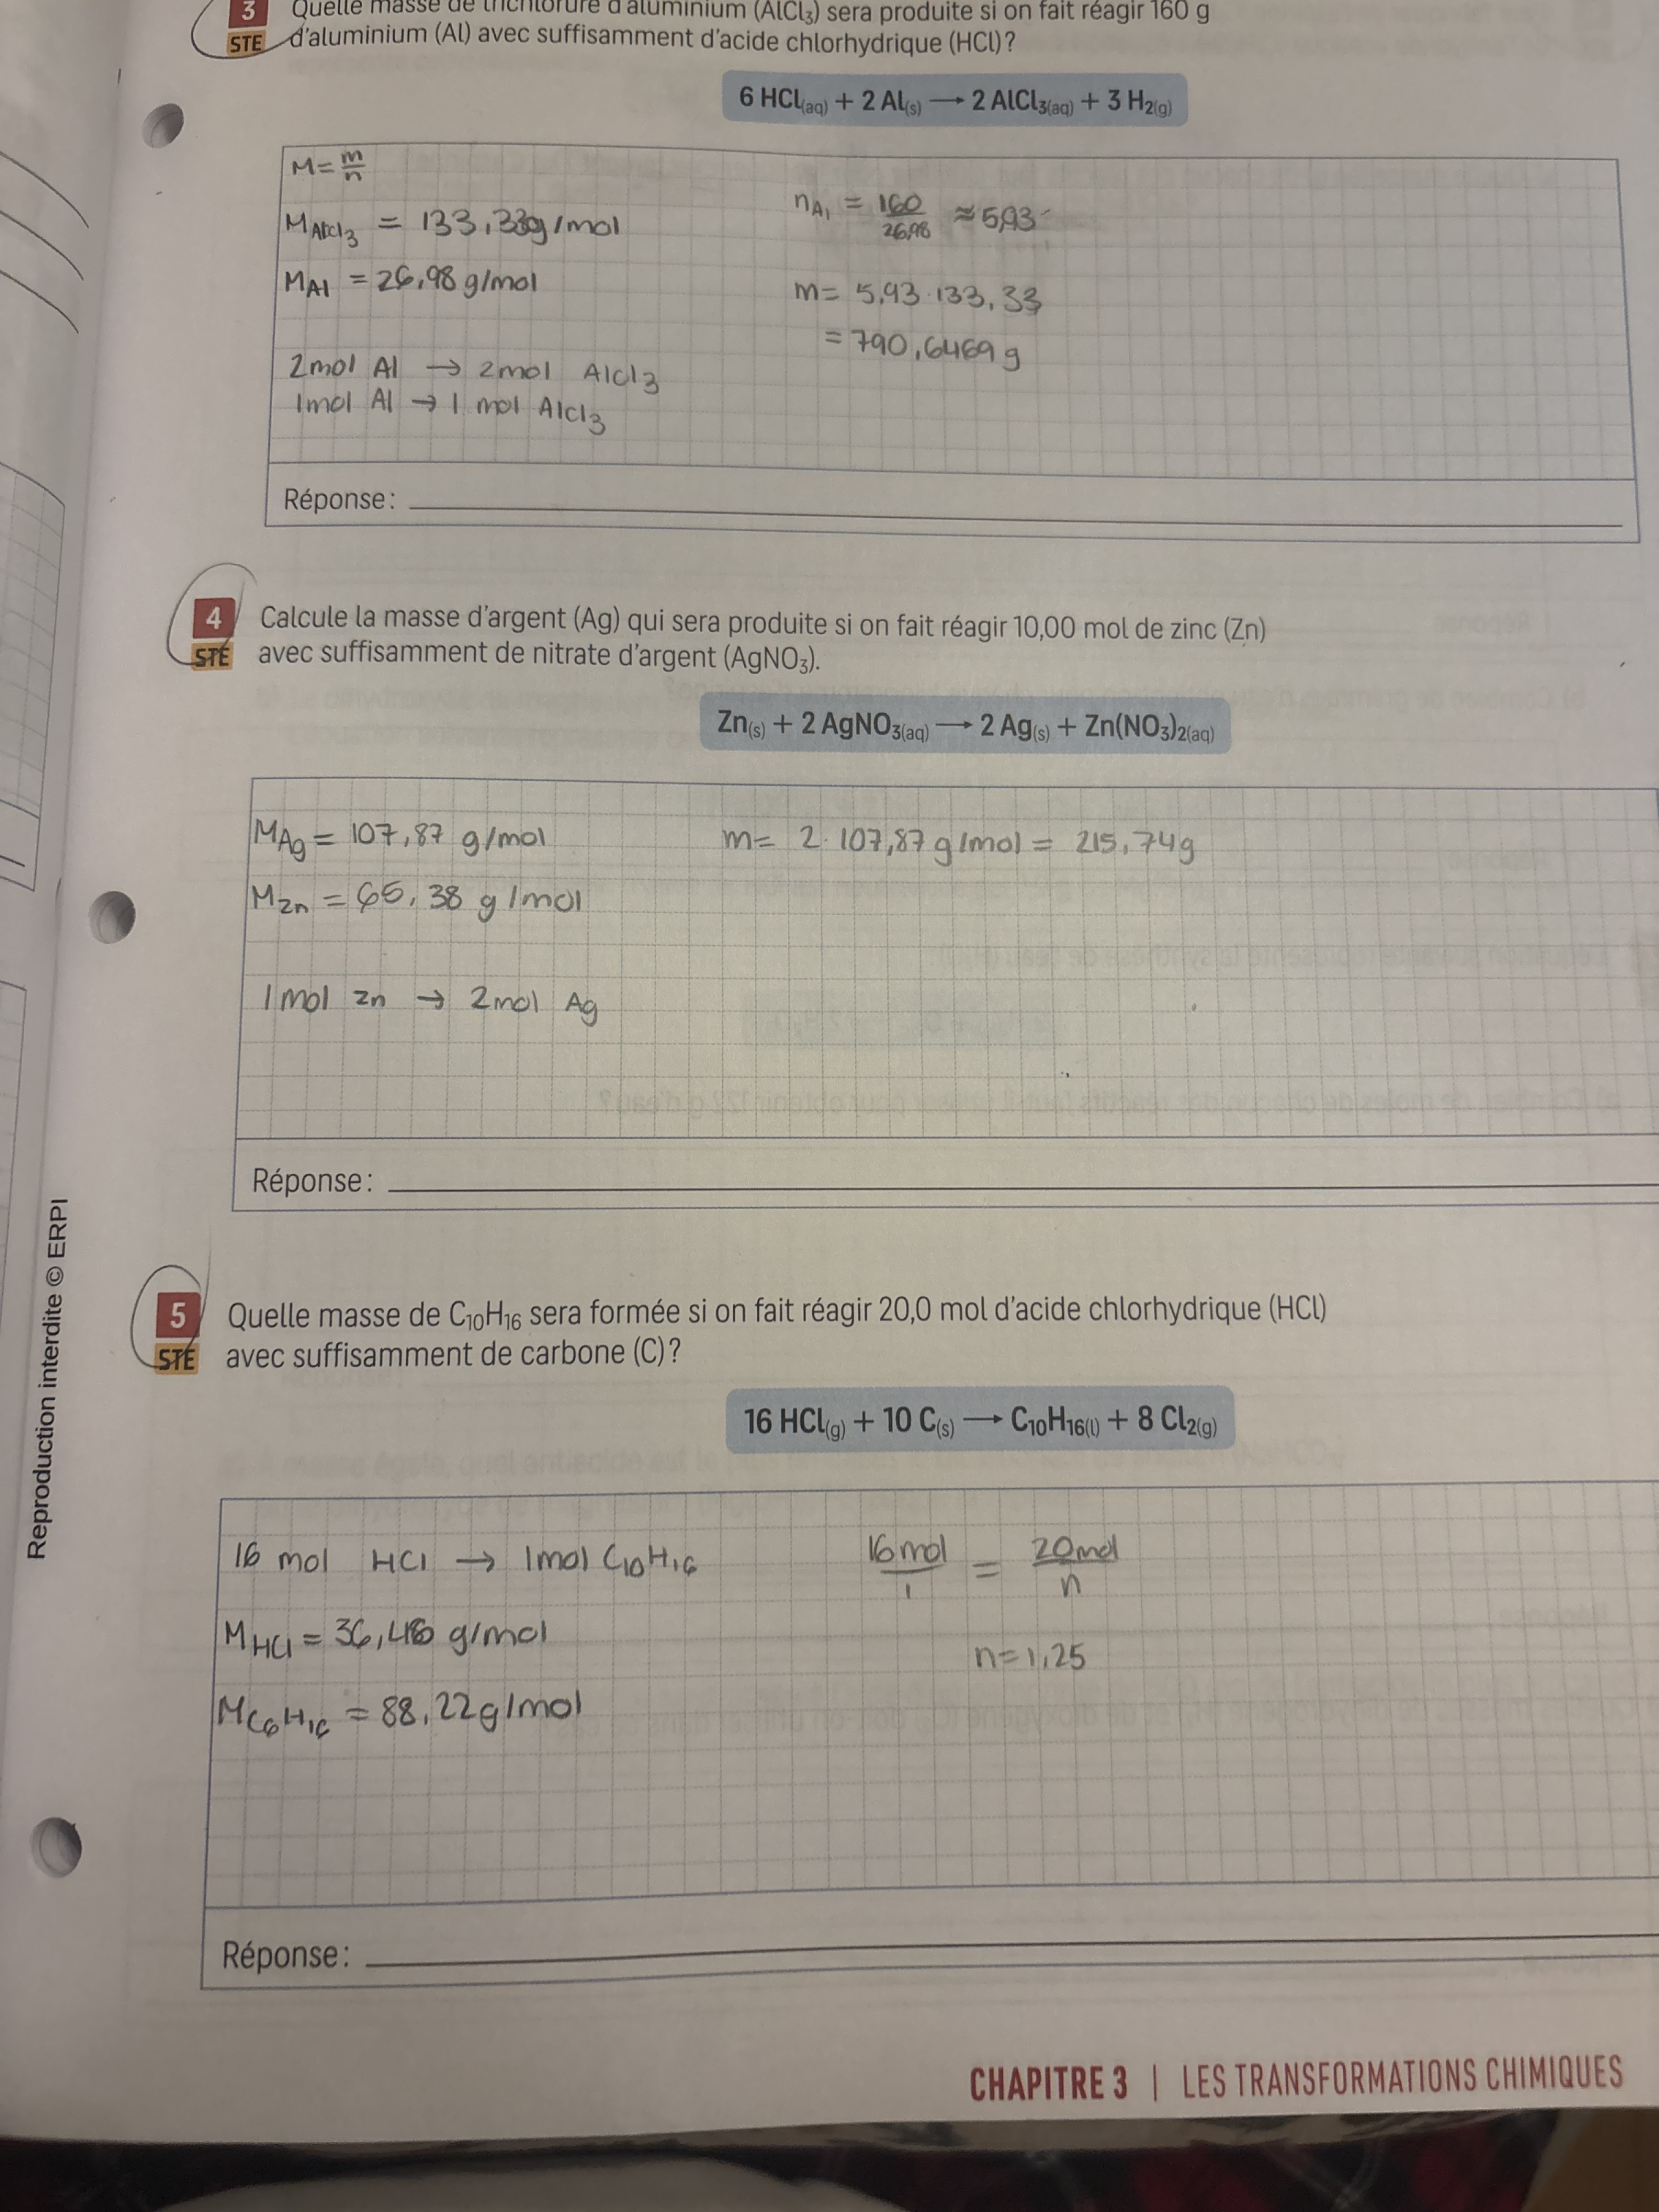 3 Quelle masse de trichlorure d'aluminium (AlCl₃) sera produite si on fait réagir 160 g
STE d'aluminium (Al) avec suffisamment d'acide chlorhydrique (HCl)?
6 HCl(aq) + 2 Al(s) → 2 AlCl₃(aq) + 3 H₂(g)
M = m/n
M AlCl₃ = 133,33g/mol
M Al = 26,98 g/mol
2mol Al → 2mol AlCl₃
1mol Al → 1 mol AlCl₃
n Al = 160/26,98 ≈ 5,93
m = 5,93 · 133,33
= 790,6469 g
Réponse :
4 Calcule la masse d'argent (Ag) qui sera produite si on fait réagir 10,00 mol de zinc (Zn)
STE avec suffisamment de nitrate d'argent (AgNO₃).
Zn(s) + 2 AgNO₃(aq) → 2 Ag(s) + Zn(NO₃)₂(aq)
M Ag = 107,87 g/mol
M Zn = 65,38 g/mol
1mol Zn → 2mol Ag
m = 2 · 107,87 g/mol = 215,74g
Réponse :
5 Quelle masse de C₁₀H₁₆ sera formée si on fait réagir 20,0 mol d'acide chlorhydrique (HCl)
STE avec suffisamment de carbone (C)?
16 HCl(g) + 10 C(s) → C₁₀H₁₆(l) + 8 Cl₂(g)
16 mol HCl → 1mol C₁₀H₁₆
M HCl = 36,46 g/mol
M C₆H₁₆ = 88,22g/mol
16mol/1 = 20mol/n
n = 1,25
Réponse :
Reproduction interdite © ERPI
CHAPITRE 3 | LES TRANSFORMATIONS CHIMIQUES